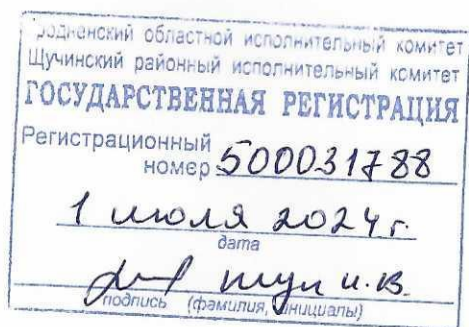 родненский областной исполнительный комитет
Щучинский районный исполнительный комитет
ГОСУДАРСТВЕННАЯ РЕГИСТРАЦИЯ
Регистрационный
номер 500031788
1 июля 2024 г.
дата
И.В.
подпись (фамилия, инициалы)